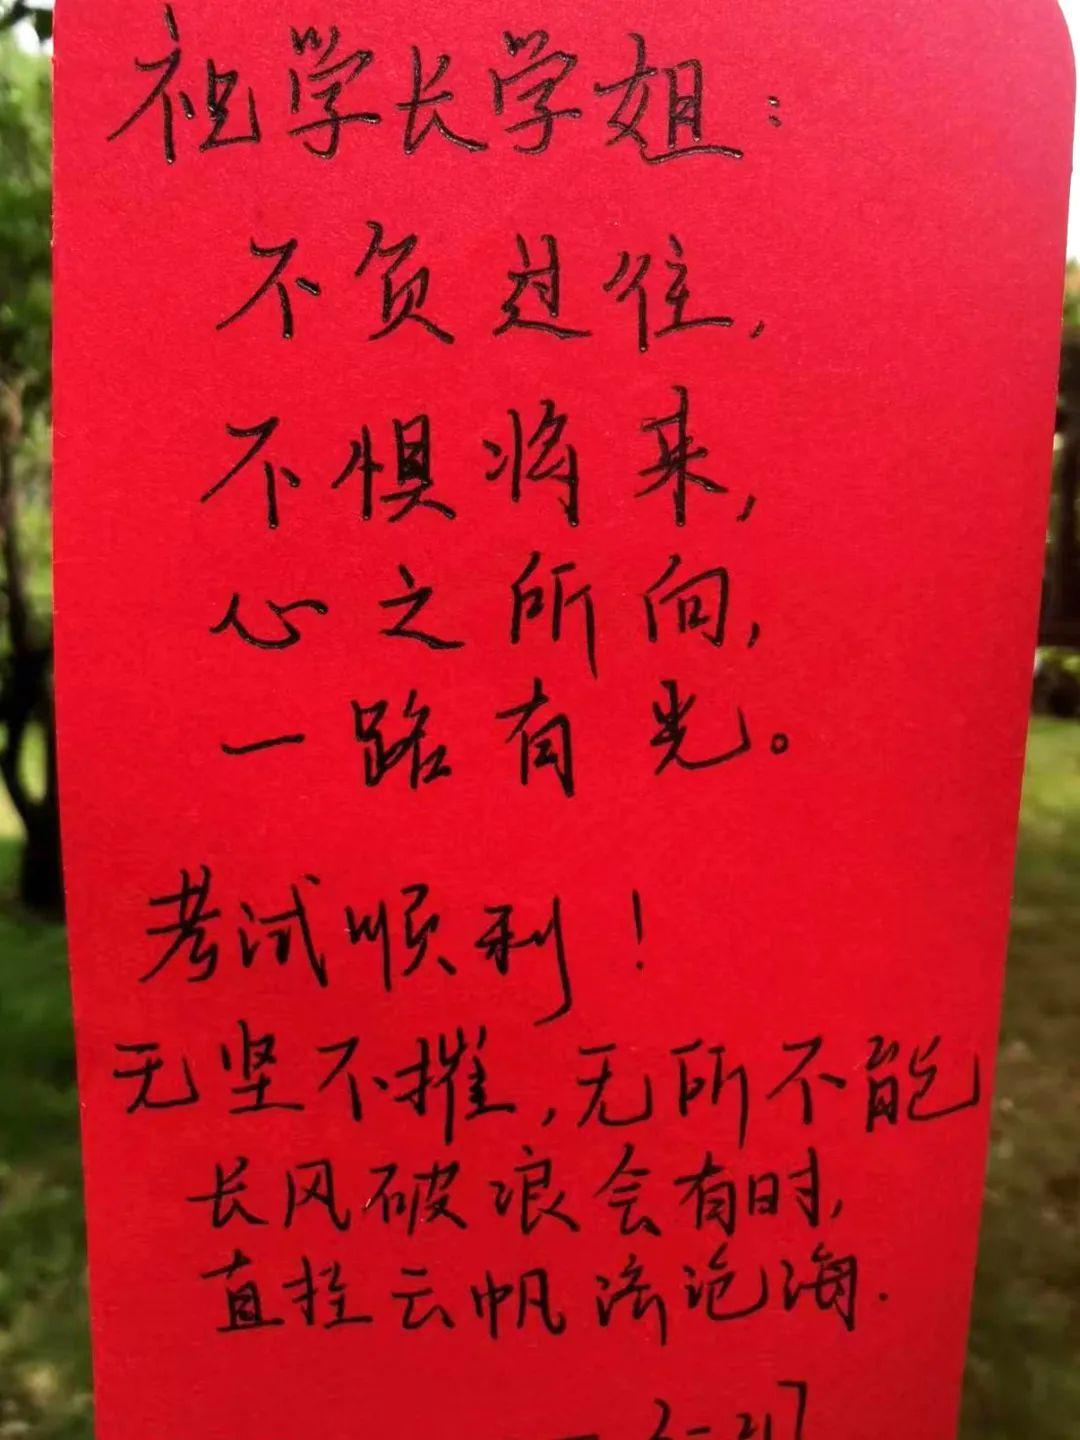 祝学长学姐：
不负过往，
不惧将来，
心之所向，
一路有光。
考试顺利！
无坚不摧，无所不能
长风破浪会有时，
直挂云帆济沧海.